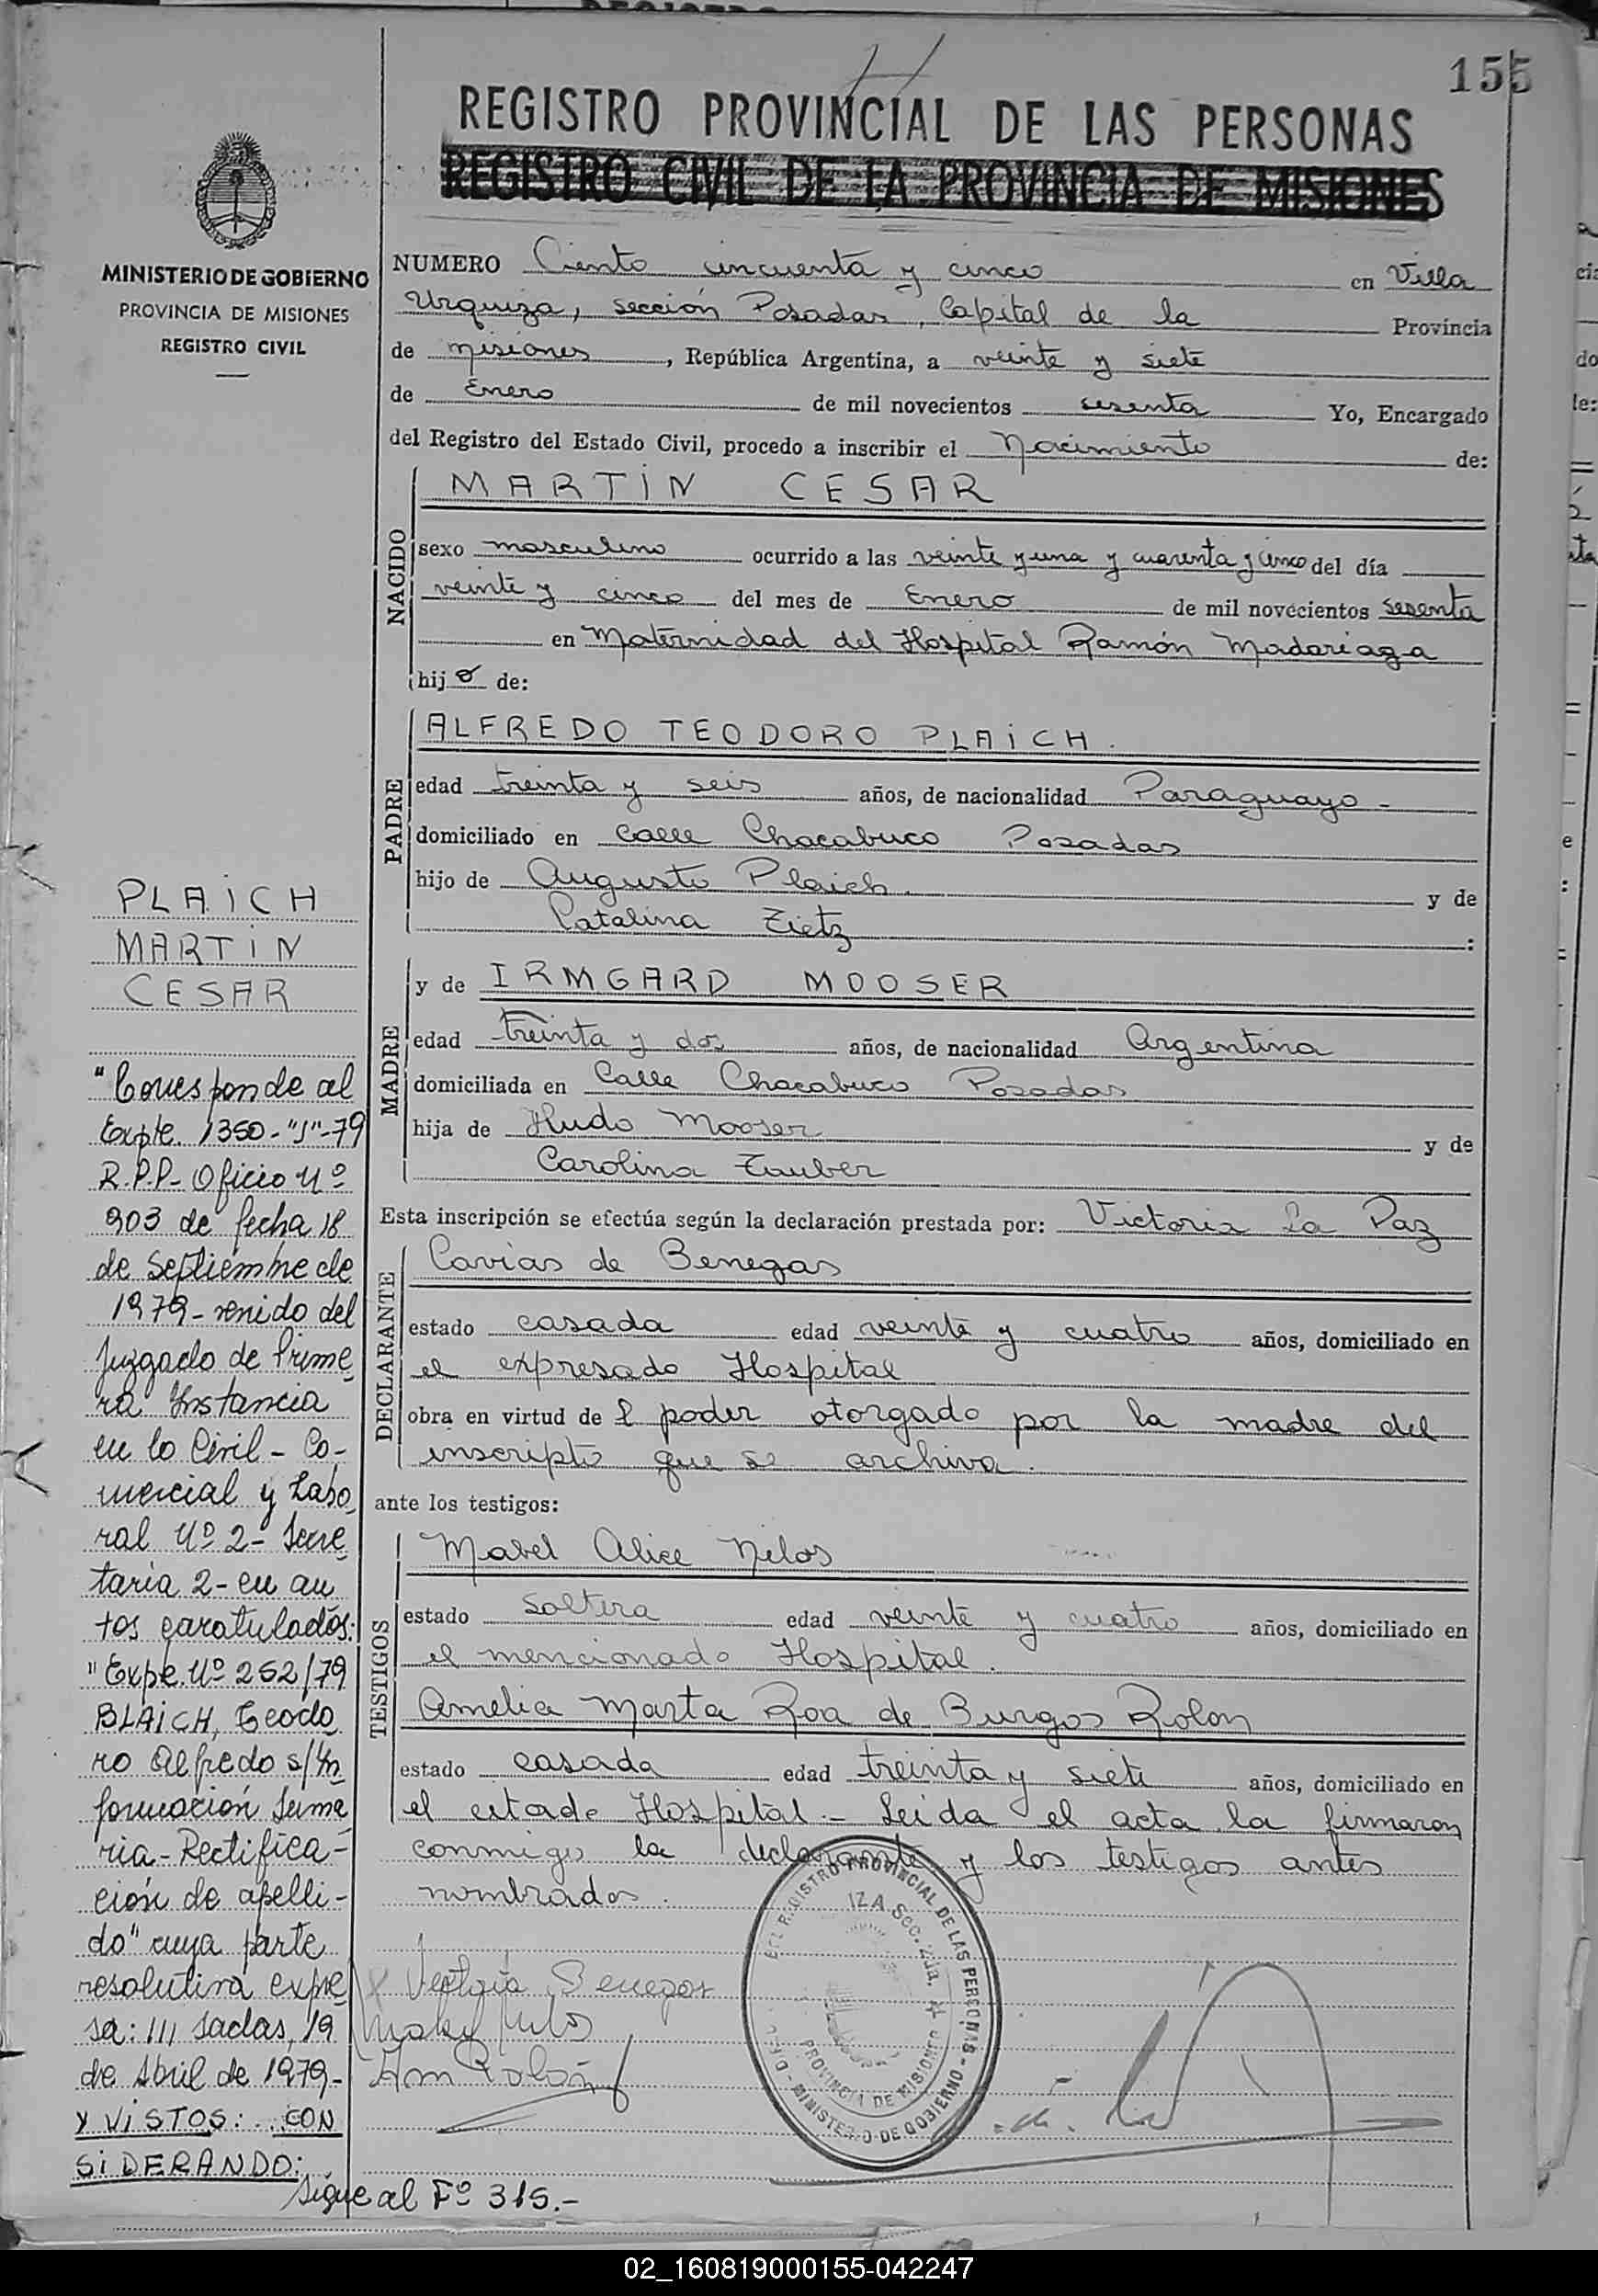 155
REGISTRO PROVINCIAL DE LAS PERSONAS
REGISTRO CIVIL DE LA PROVINCIA DE MISIONES
MINISTERIO DE GOBIERNO
PROVINCIA DE MISIONES
REGISTRO CIVIL
NUMERO Ciento cincuenta y cinco en Villa
Urquiza, sección Posadas, Capital de la Provincia
de misiones, República Argentina, a veinte y siete
de Enero de mil novecientos sesenta Yo, Encargado
del Registro del Estado Civil, procedo a inscribir el Nacimiento de:
NACIDO
MARTIN CESAR
sexo masculino ocurrido a las veinte y una y cuarenta y cinco del día
veinte y cinco del mes de Enero de mil novecientos sesenta
en Maternidad del Hospital Ramón Madariaga
hijo de:
PADRE
ALFREDO TEODORO PLAICH.
edad treinta y seis años, de nacionalidad Paraguayo -
domiciliado en Calle Chacabuco Posadas
hijo de Augusto Plaich. y de
Catalina Zietz:
MADRE
y de IRMGARD MOOSER
edad treinta y dos años, de nacionalidad Argentina
domiciliada en Calle Chacabuco Posadas
hija de Hudo Mooser y de
Carolina Tauber
Esta inscripción se efectúa según la declaración prestada por: Victoria La Paz
DECLARANTE
Cavias de Benegas
estado casada edad veinte y cuatro años, domiciliado en
el expresado Hospital
obra en virtud del poder otorgado por la madre del
inscripto que se archiva.
ante los testigos:
TESTIGOS
Mabel Alice Nilos
estado Soltera edad veinte y cuatro años, domiciliado en
el mencionado Hospital.
Amelia Marta Roa de Burgos Rolon
estado casada edad treinta y siete años, domiciliado en
el citado Hospital.- Leida el acta la firmaron
conmigo la declarante y los testigos antes
nombrados.
PLAICH
MARTIN
CESAR
"Corresponde al
Expte. 1350-"J"-79
R.P.P- Oficio Nº
903 de fecha 18
de Septiembre de
1979- venido del
Juzgado de Prime
ra Instancia
en lo Civil - Co-
mercial y Labo
ral Nº 2- Secre
taria 2- en au
tos caratulados:
"Expe. Nº 252/79
BLAICH, Teodo
ro Alfredo s/In
formación Suma
ria- Rectifica-
ción de apelli-
do" cuya parte
resolutiva expre
sa: /// sadas, 19
de Abril de 1979-
Y VISTOS: CON
SIDERANDO:
Sigue al Fº 315.-
REGISTRO PROVINCIAL DE LAS PERSONAS
MINISTERIO DE GOBIERNO
PROVINCIA DE MISIONES
02_160819000155-042247